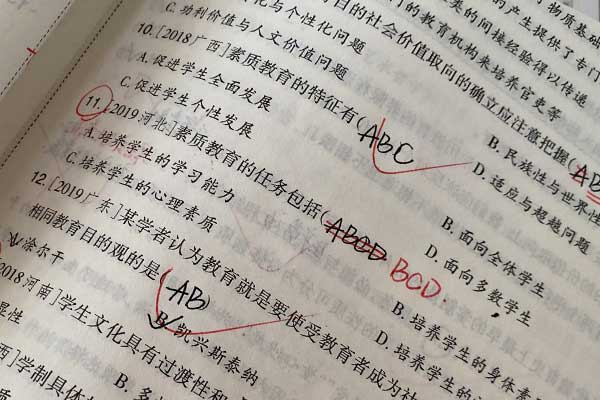 的产生提供了专门
物质基础
类的间接经验得以传递
的教育机构来培养官吏等
目的社会价值取向的确立应注意把握(AB
化与个性化问题
B.民族性与世界性
C.功利价值与人文价值问题
D.适应与超越问题
10.[2018广西]素质教育的特征有(ABC
A.促进学生全面发展
B.面向全体学生
C.促进学生个性发展
D.面向多数学生
11.[2019河北]素质教育的任务包括(ABCD BCD.
A.培养学生的学习能力
B.培养学生的身体素质
C.培养学生的心理素质
D.培养学生的
12.[2019广东]某学者认为教育就是要使受教育者成为社
相同教育目的观的是(AB)
涂尔干
B.凯兴斯泰纳
2018河南]学生文化具有过渡性和
显性
B.多
西]学制具体